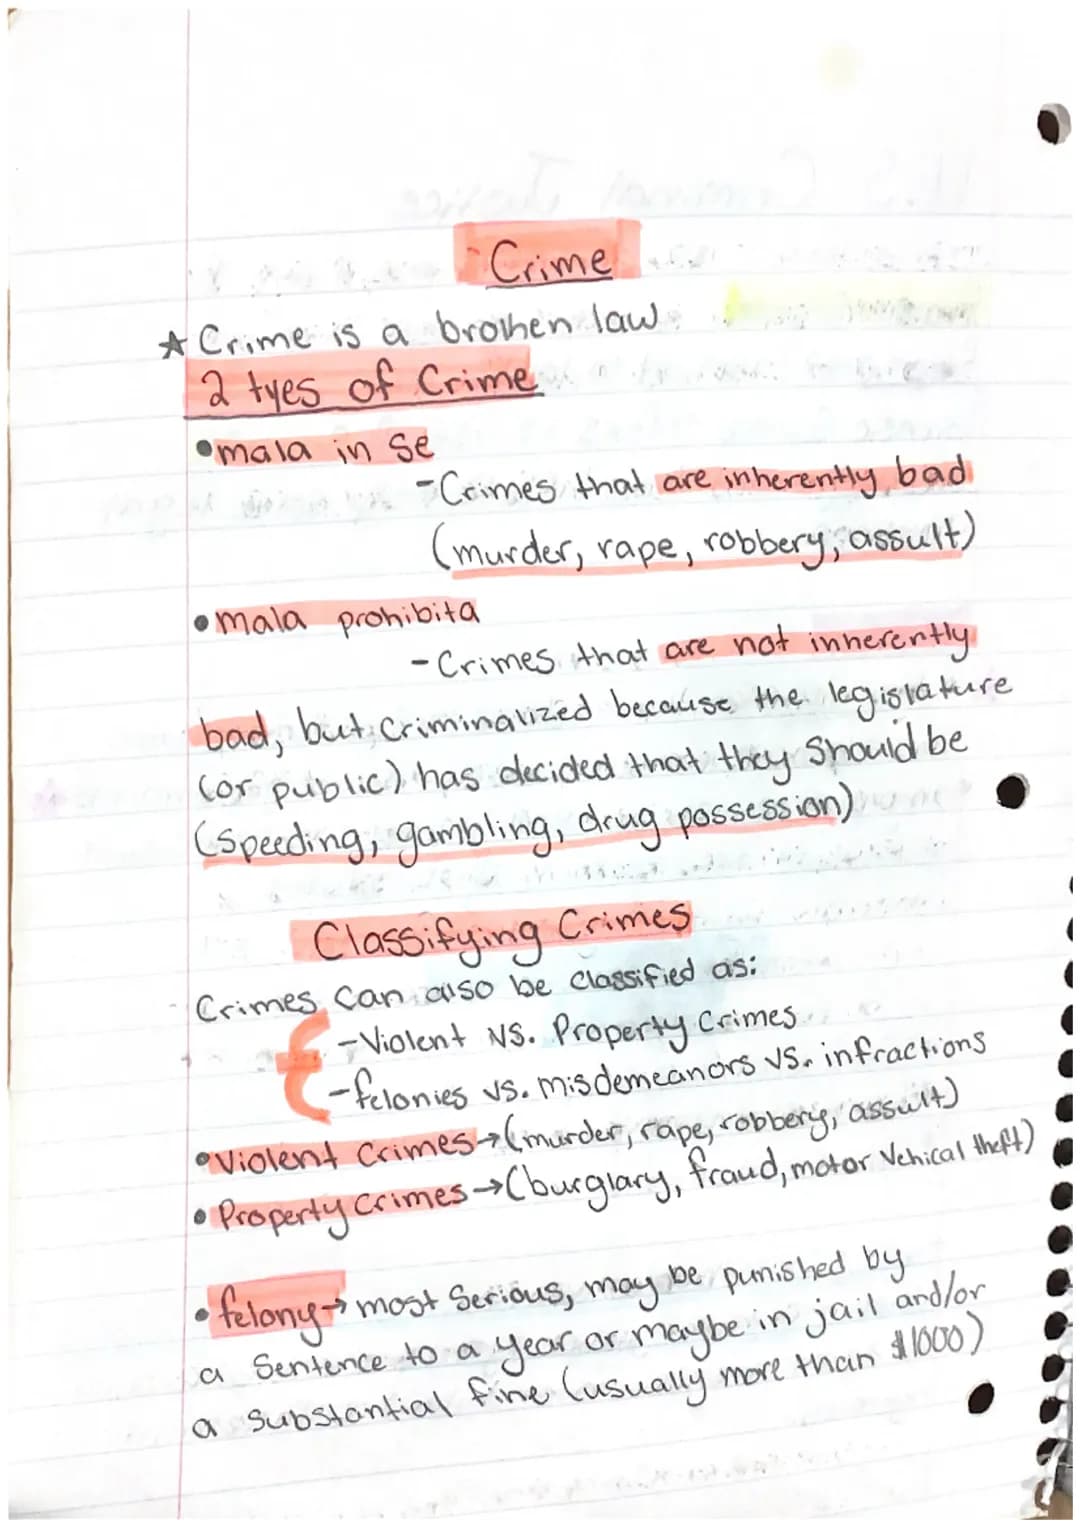 Crime
★ Crime is a broken law
2 tyes of Crime
•mala in se
-Crimes that are inherently bad
(murder, rape, robbery, assult)
•mala prohibita
-Crimes that are not inherently
bad, but criminalized because the legislature
(or public) has decided that they should be
(speeding, gambling, drug possession)
Classifying Crimes
Crimes can also be classified as:
-Violent vs. Property Crimes
-felonies vs. misdemeanors vs. infractions
•Violent Crimes→(murder, rape, robbery, assult)
•Property Crimes→(burglary, fraud, motor vehical theft)
•felony→ most serious, may be punished by
a sentence to a year or maybe in jail and/or
a substantial fine (usually more than $1000)